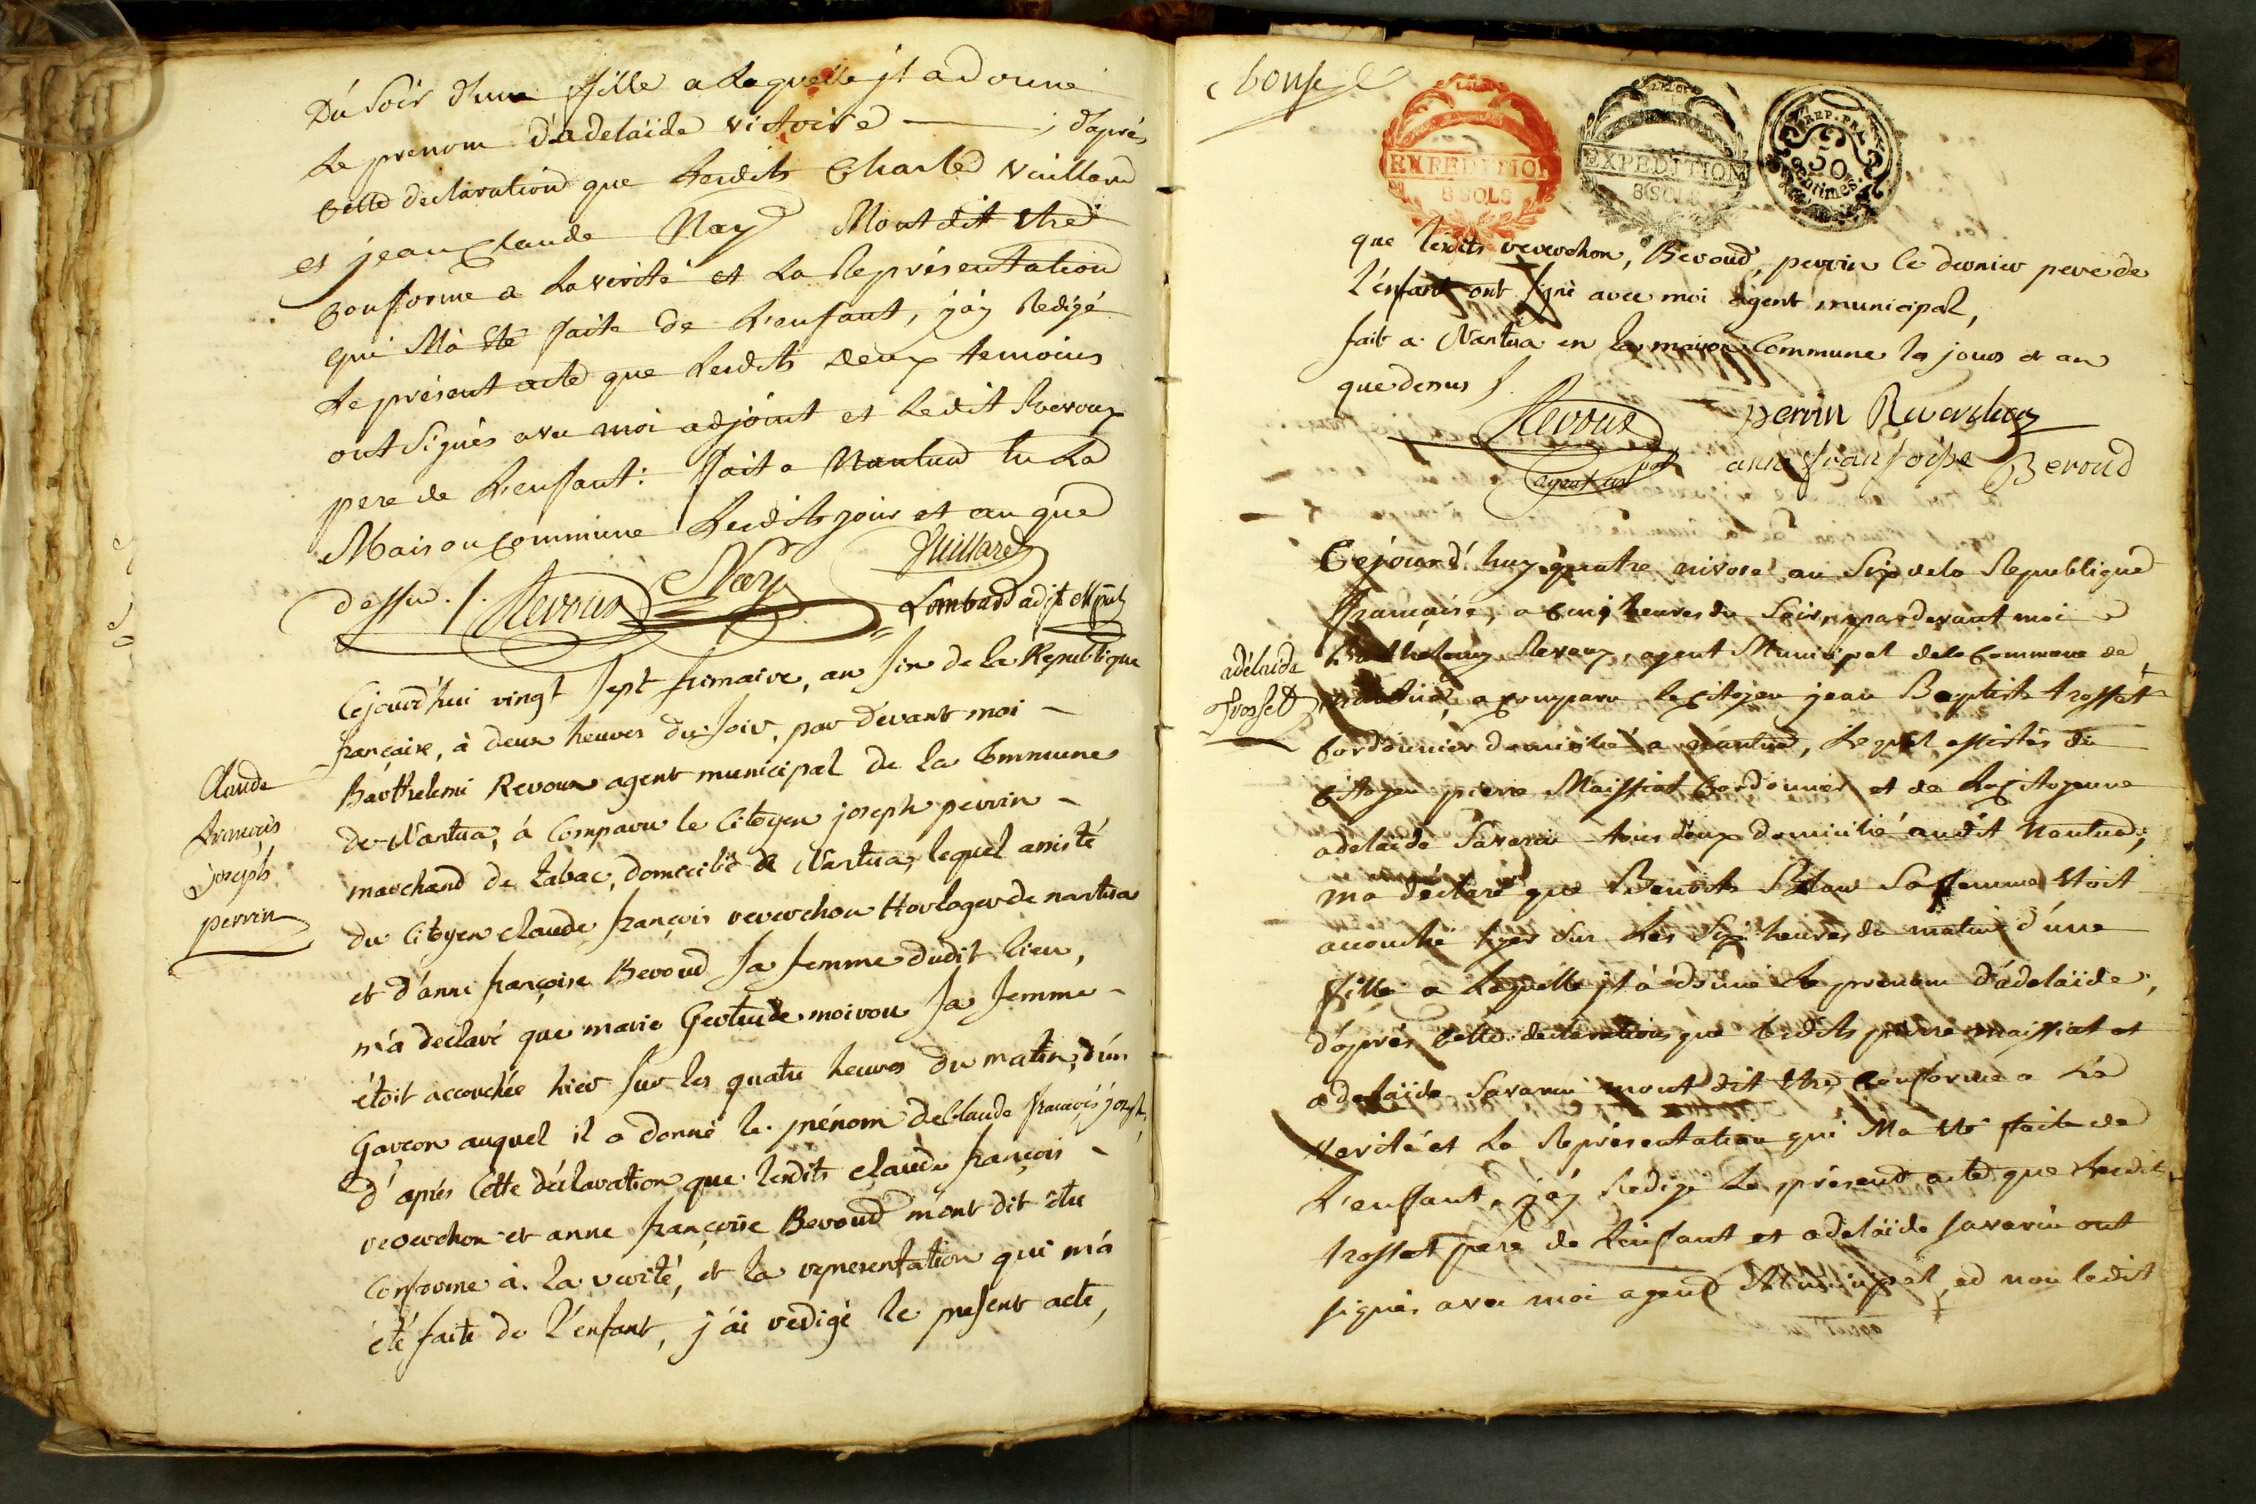 Du Soir d'une fille a laquelle jl a donné
Le prenom d'adelaïde victoire — ; d'aprés
Cette declaration que Lesdits Charles Vuillard
et jean Claude Nay Mont dit Etre
Conforme a La verité et La Représentation
qui M'a été faite de L'enfant, j'ay Redigé
Le présent acte que Lesdits deux temoins
ont Signés avec moi adjoint et Ledit Revoux
pere de L'enfant: fait a Nantua En La
Maison Commune Lesdits jour et an que
dessus. /. Revoux Nay Vuillard
Lombard adjt Mpal
Claude
François
joseph
perrin
Cejourd'hui vingt sept frimaire, an six de la République
française, à deux heures du soir, par devant moi –
Barthelemi Revoux agent municipal de la Commune
de Nantua, à Comparu le Citoyen joseph perrin –
marchand de tabac, domicilié à Nantua, lequel assisté
du Citoyen claude françois reverchon Horloger de nantua
et d'anne françoise Beroud sa femme dudit lieu,
m'a declaré que marie Gertrude moiroux sa femme –
étoit accouchée hier sur les quatre heures du matin, d'un
Garcon auquel il a donné le prénom de Claude françois joseph,
d'après Cette déclaration que lesdits claude françois –
reverchon et anne françoise Beroud m'ont dit être
Conforme à la verité, et la representation qui m'a
été faite de l'enfant, j'ai redigé le present acte,
EXPEDITION
8 SOLS
EXPEDITION
8 SOLS
REP. FRA
50
centimes
que lesdits reverchon, Beroud, perrin le dernier pere de
l'enfant ont signé avec moi agent municipal,
fait a Nantua en la maison Commune les jour et an
que dessus /.
Revoux perrin Reverchon
agent mpal anne françoise Beroud
adélaide
trosset
Cejourd'huy quatre nivose an Six de la Republique
française, a Cinq heures du Soir, pardevant moi
Barthelemy Revoux, agent Municipal de la Commune de
Nantua, a comparu le citoyen jean Baptiste trosset
Cordonnier domicilié a nantua, Lequel assistés du
Citoyen pierre Maissiat Cordonnier et de La Citoyenne
adelaide Savarin tous deux domicilié audit Nantua,
ma déclaré que Benoite Sa femme Etoit
accouché hyer Sur Les Six heures du matin d'une
fille a Laquelle jl a donné Le prenom d'adelaïde,
d'aprés Cette declaration que Lesdits pierre maissiat et
adelaïde Savarin mont dit Etre Conforme a La
verité et La Représentation qui Ma Eté faite de
L'enfant, j'ay Redigé Le présent acte que Ledit
trosset pere de L'enfant et adelaïde savarin ont
signés avec moi agent Municipal, et non ledit